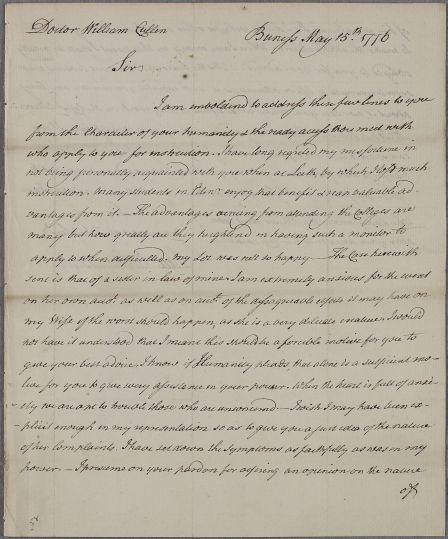 Doctor William Cullen
Buness May 15th 1776
Sir
I am imboldend to address these few lines to you
from the Character of your humanity & the ready access those meet with
who apply to you for instruction. I have long regreted my misfortune in
not being personally acquainted with you when at Leith, by which I lost much
instruction. Many students in Edinr enjoy that benefit & reap valuable ad-
vantages from it — The advantages arising from attending the Colleges are
many but how greatly are they heightend in having such a monitor to
apply to when difficulted. my Lot was not so happy — The Case herewith
sent is that of a sister in law of mine. I am extremely anxious for the event
on her own acct. as well as on acct. of the disagreeable effects it may have on
my Wife if the worst should happen, as she is a very delicate creature. I would
not have it understood that I mean this should be a forcible motive for you to
give your best advice. I know if Humanity pleads, that alone is a sufficient mo-
tive for you to give every assistance in your power. When the heart is full of anxi-
ety we are apt to trouble those who are unconcernd — I wish I may have been ex-
plicit enough in my representation so as to give you a just idea of the nature
of her complaints. I have set down the symptoms as faithfully as was in my
power. — I presume on your pardon for asking an opinion on the nature
of